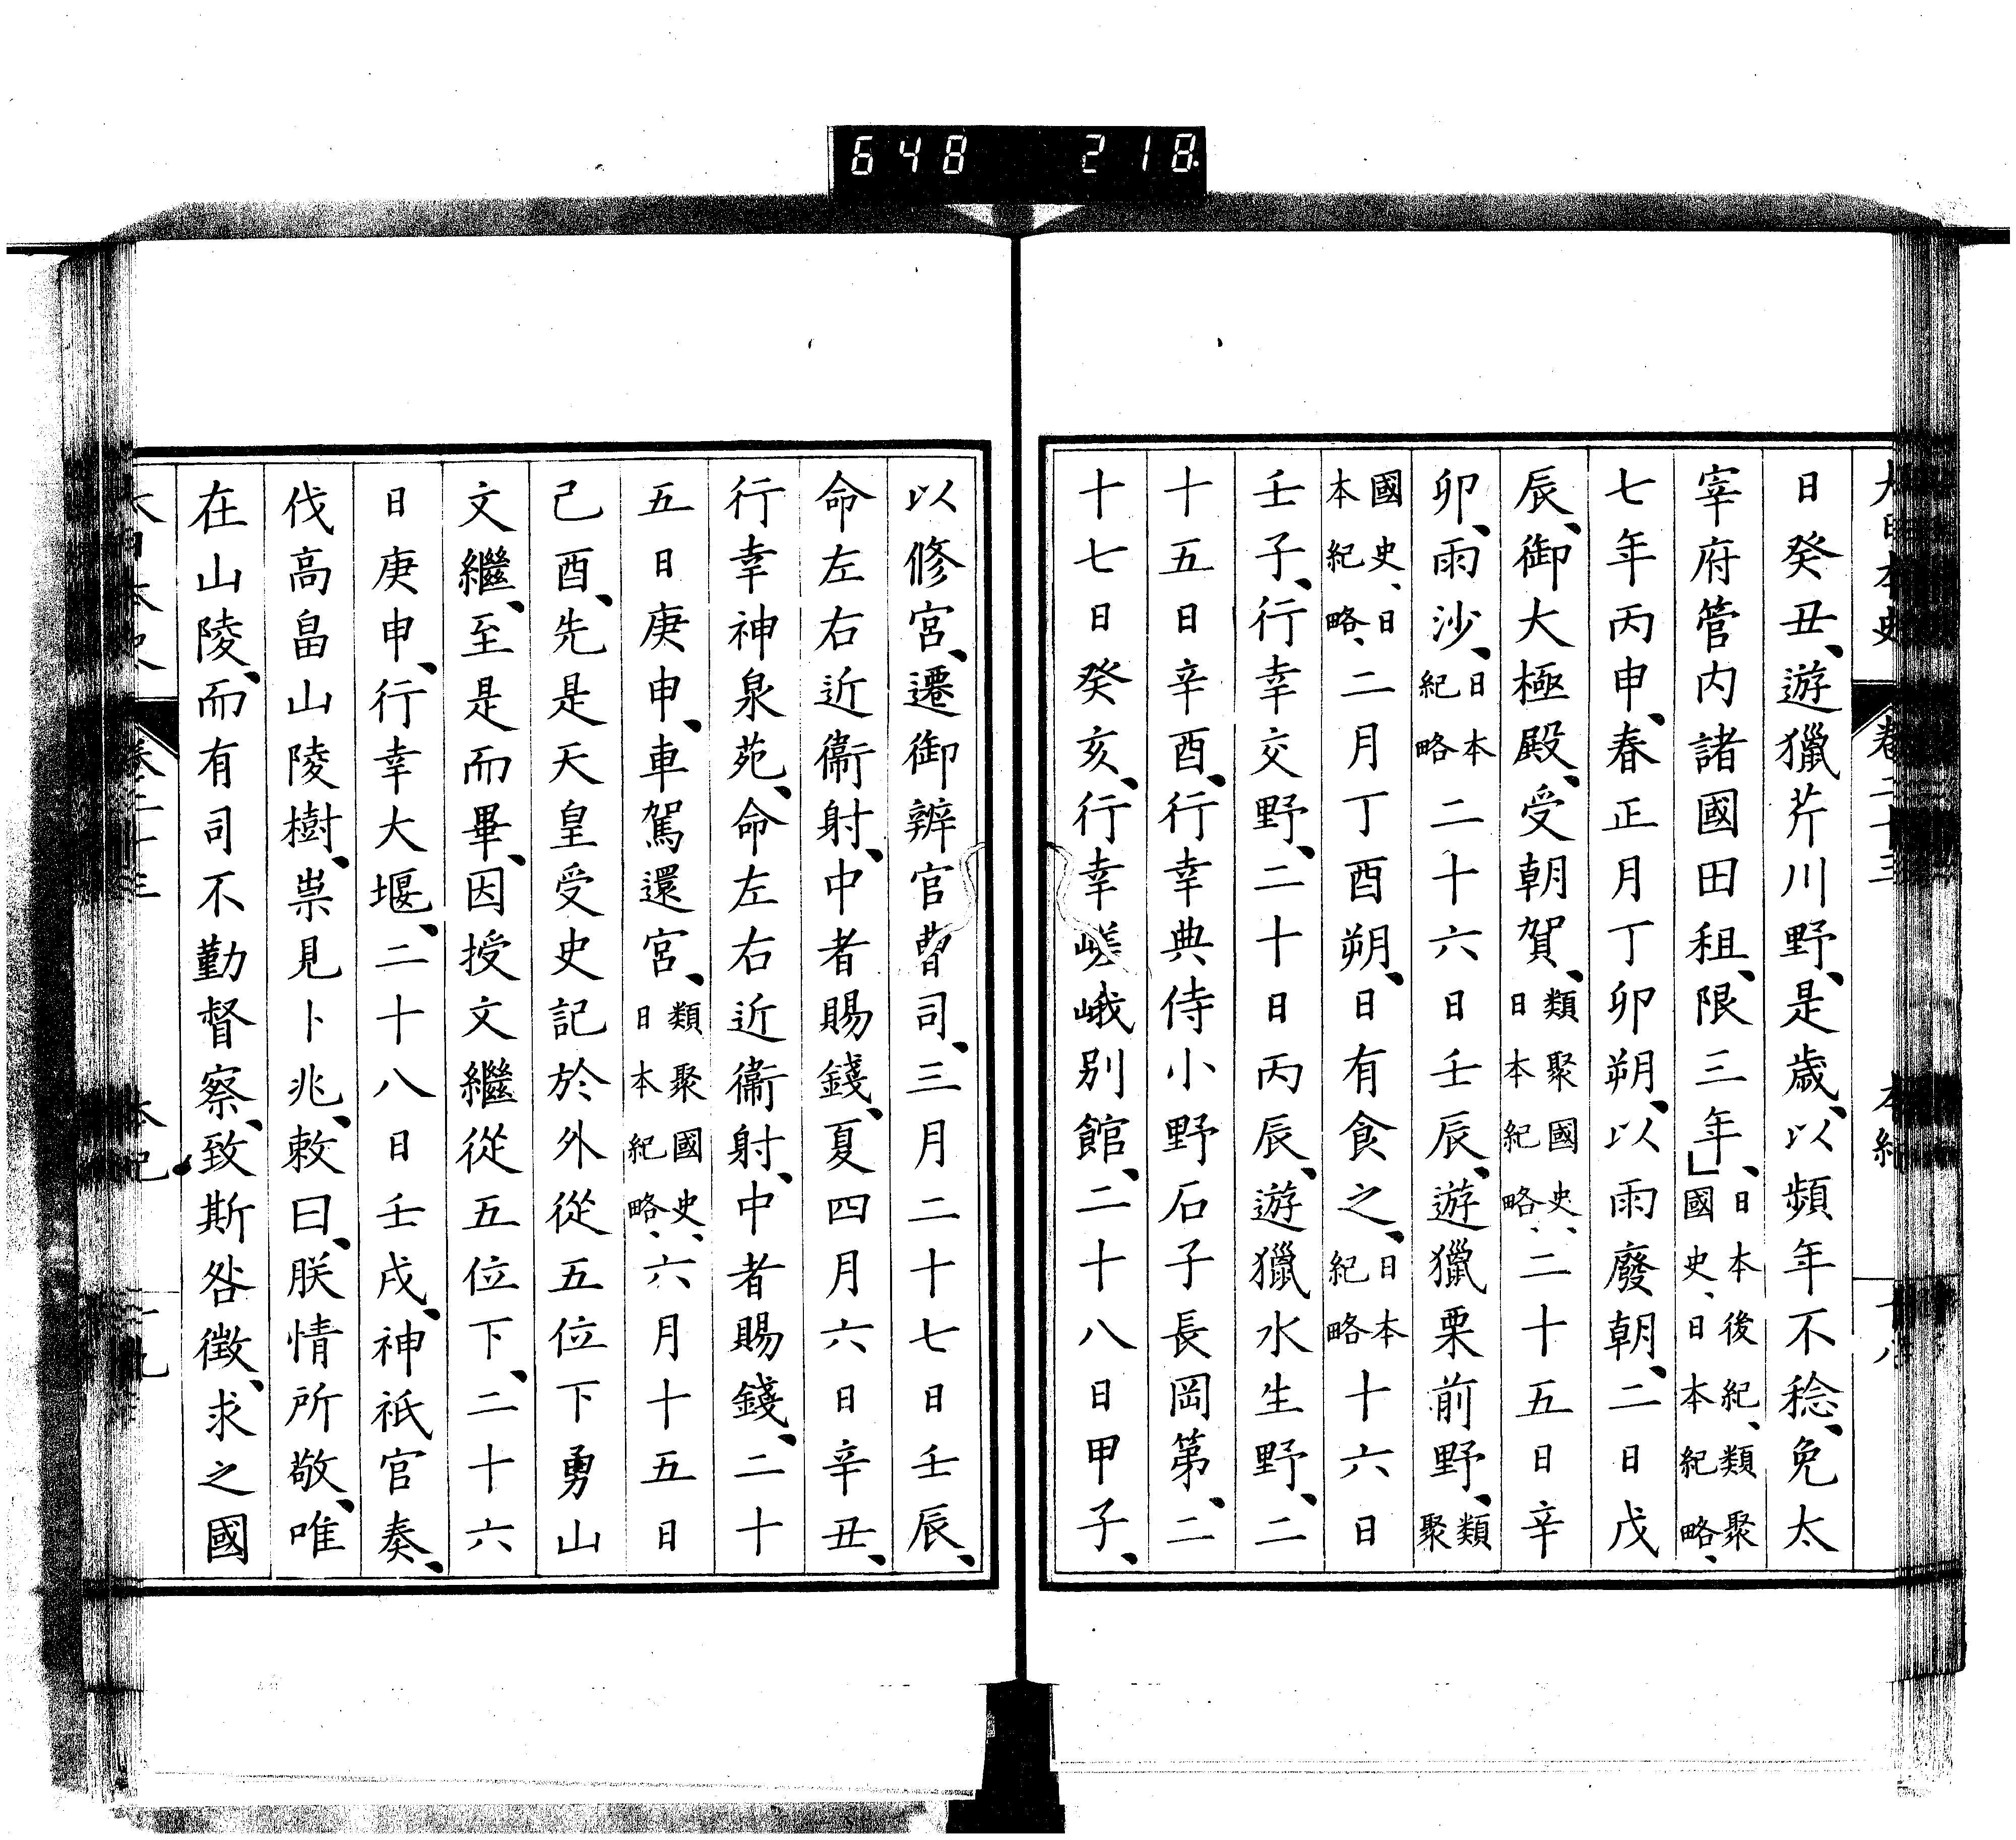 648 218
大日本史 卷二十三 本紀 十八
日癸丑、遊獵芹川野、是歲、以頻年不稔、免太
宰府管内諸國田租、限三年、」日本後紀、類聚國史、日本紀略、
七年丙申、春正月丁卯朔、以雨廢朝、二日戊
辰、御大極殿、受朝賀、類聚國史、日本紀略、二十五日辛
卯、雨沙、日本紀略二十六日壬辰、遊獵栗前野、類聚
國史、日本紀略、二月丁酉朔、日有食之、日本紀略十六日
壬子、行幸交野、二十日丙辰、遊獵水生野、二
十五日辛酉、行幸典侍小野石子長岡第、二
十七日癸亥、行幸嵯峨別館、二十八日甲子、
以修宮、遷御辨官曹司、三月二十七日壬辰、
命左右近衞射、中者賜錢、夏四月六日辛丑、
行幸神泉苑、命左右近衞射、中者賜錢、二十
五日庚申、車駕還宮、類聚國史、日本紀略、六月十五日
己酉、先是天皇受史記於外從五位下勇山
文繼、至是而畢、因授文繼從五位下、二十六
日庚申、行幸大堰、二十八日壬戌、神祇官奏、
伐高畠山陵樹、祟見卜兆、敕曰、朕情所敬、唯
在山陵、而有司不勤督察、致斯咎徵、求之國
大日本史 卷二十三 本紀 十九